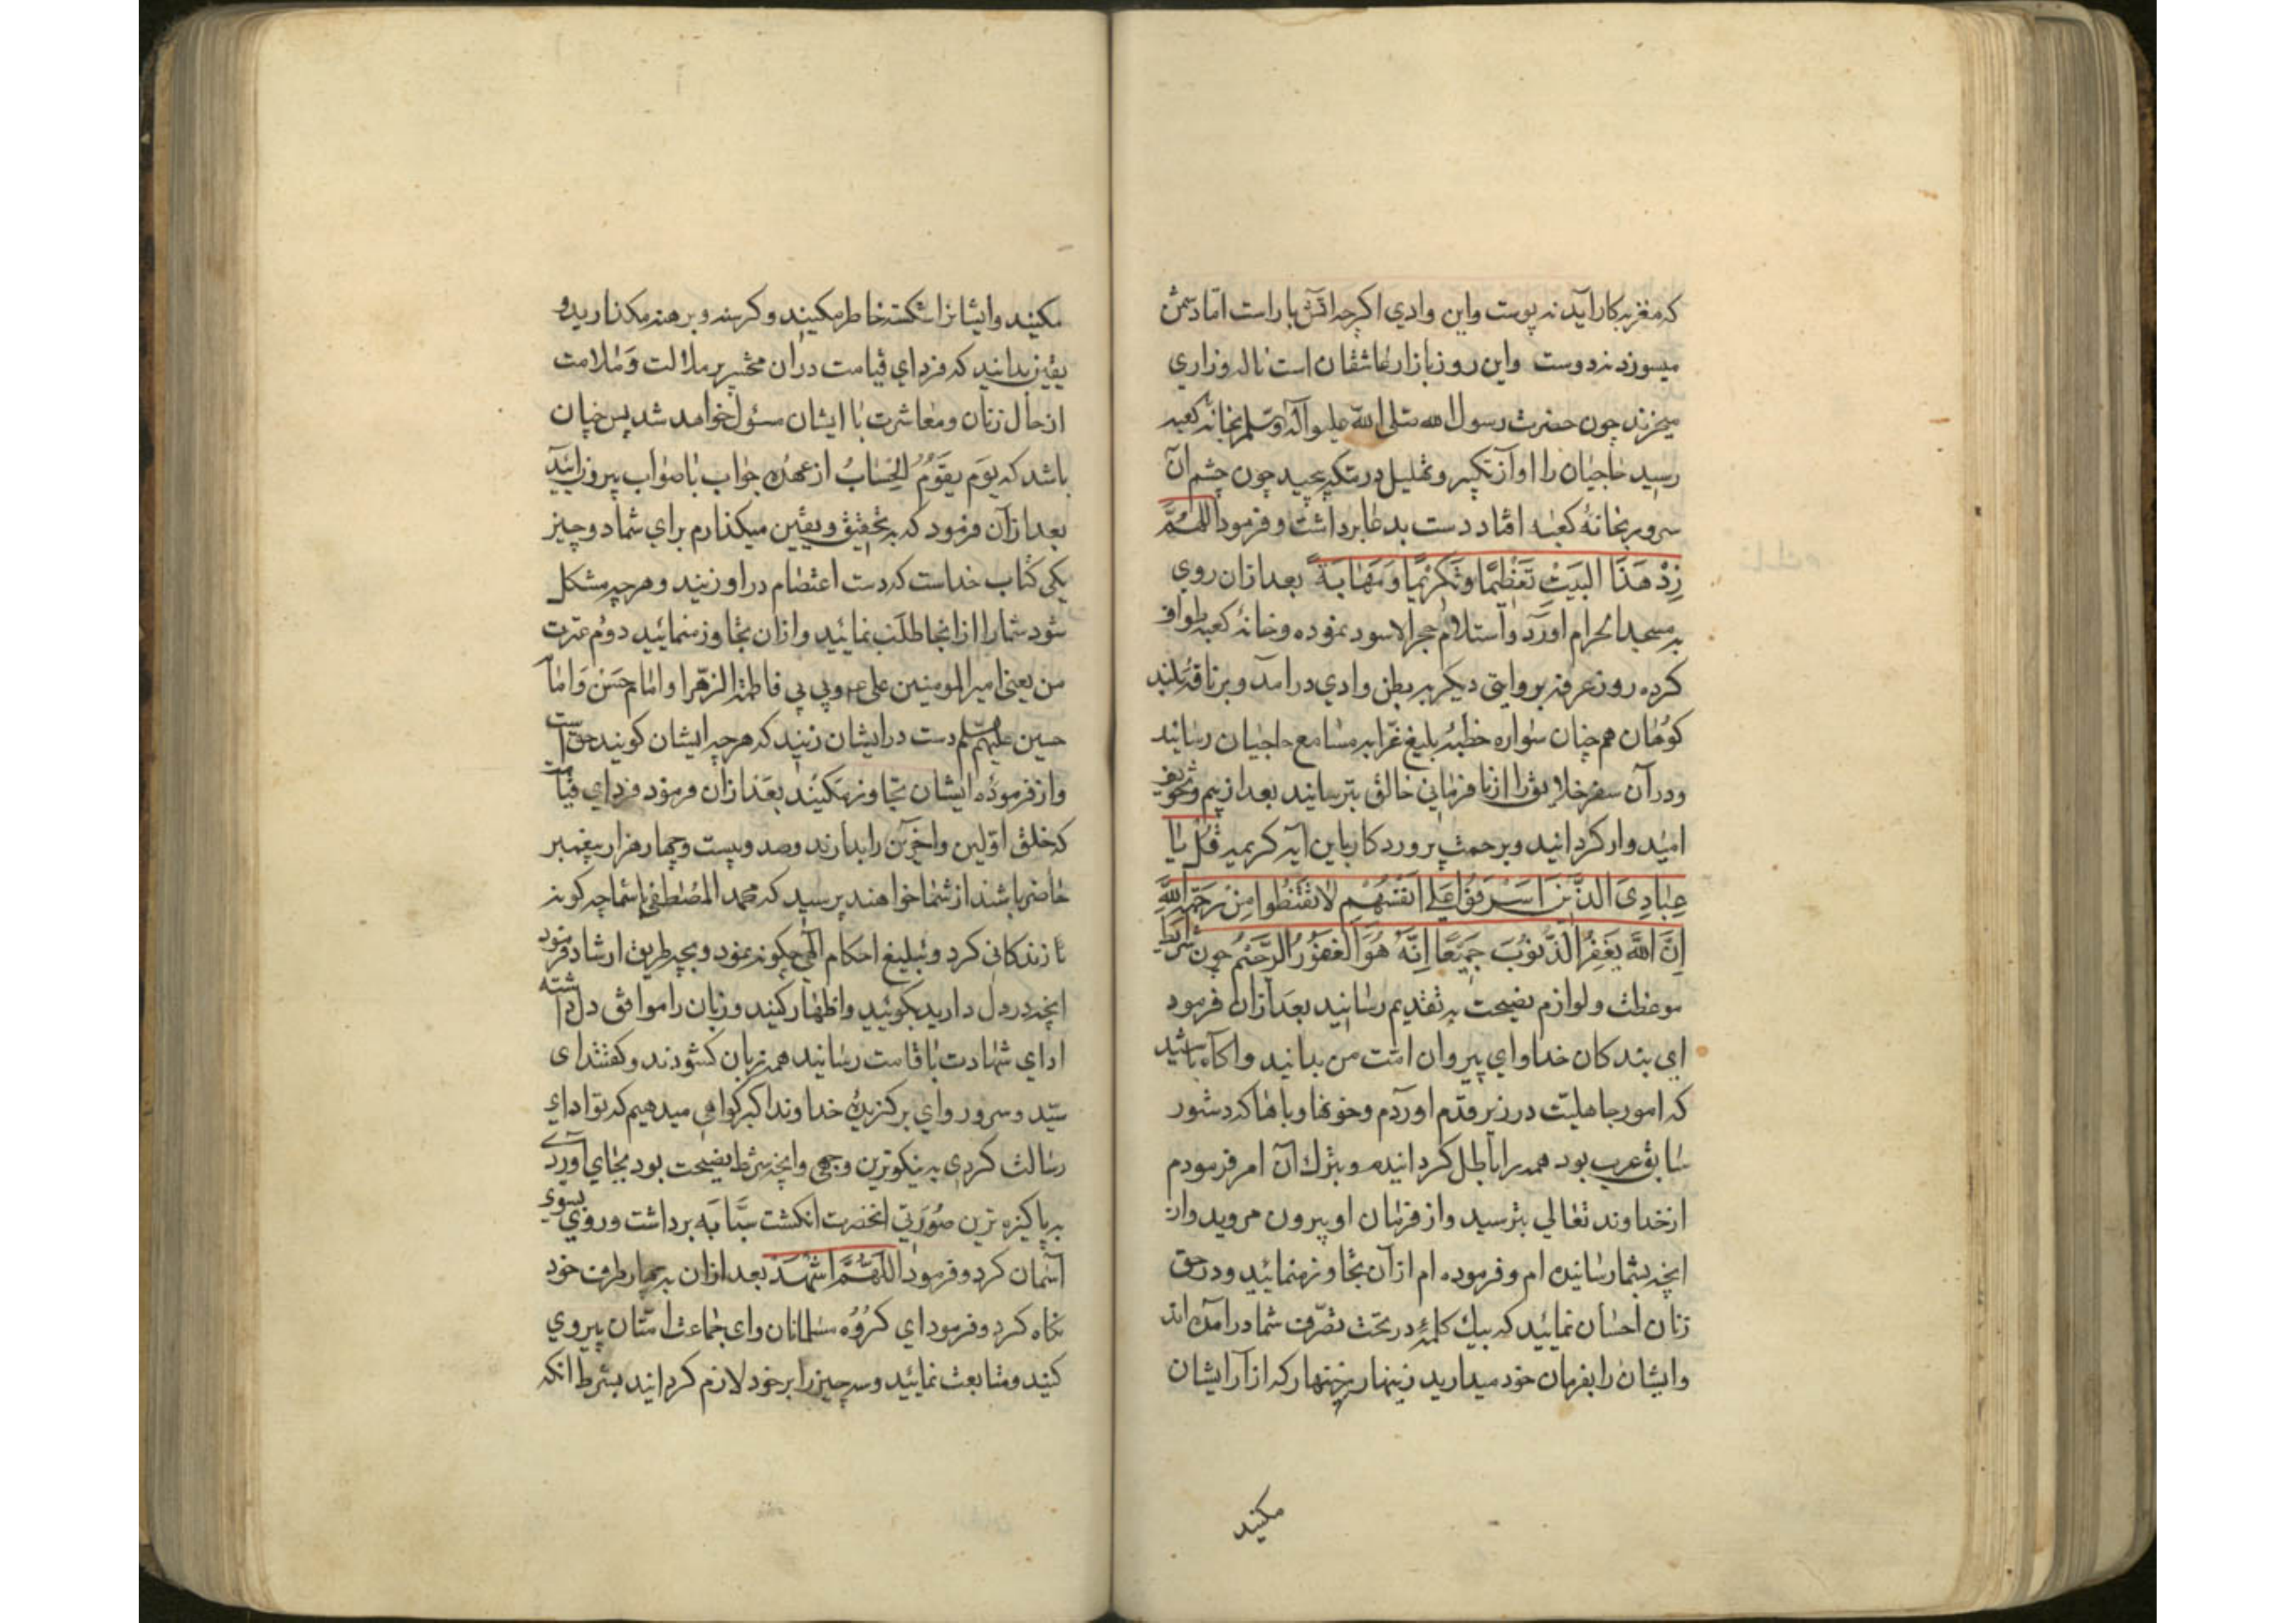 که مغز بکار آید نه پوست واین وادي اکرچه اتش باراست امّا دشمن
میسوزد نه دوست واین روز بازار عاشقان است ناله وزاري
میخرند چون حضرت رسول الله صلی الله علیه وآله وسلم بخانه کعبه
رسید حاجیان را اواز تکبیر وتهلیل در چون چشم آن
سرور بخانهٔ کعبه افتاد دست بدعا برداشت وفرمود اللهمّ
زِدْ هَذَا البَیْتَ تَعْظِیمًا وتَکْرِیمًا وَمَهَابَةً بعد ازان روي
به مسجد الحرام اورد واستلام حجر الاسود نموده وخانهٔ کعبه طواف
کرده روز عرفه بروایتي دیکر به بطن وادي درامد وبر ناقهٔ بلند
کوهان هم چنان سواره خطبهٔ بلیغ غرّا به مسامع حاجیان رسانید
ودرآن سفر خلایق را از نا فرماني خالق بترسانید بعد ازبیم وتخویف
امیدوار کردانید وبرحمت پروردکار باین آیه کریمه قُلْ یَا
عِبَادِیَ الَّذِینَ اَسْرَفُوْا عَلَی اَنْفُسِهِمْ لَا تَقْنَطُوا مِنْ رَحْمَةِ اللَّهِ
اِنَّ اللَّهَ یَغْفِرُ الذُّنُوْبَ جَمِیْعًا اِنَّهُ هُوَ الْغَفُوْرُ الرَّحِیْمُ چون شرایط
موعظت ولوازم نصیحت به تقدیم رسانید بعد ازان فرمود
اي بندکان خدا واي پیروان امّت من بدانید واکاه باشید
که امور جاهلیّت در زیر قدم اوردم وخونها وباها که دستور
سابق عرب بود همه را باطل کردانیده وبترك آن امر فرمودم
از خداوند تعالي بترسید واز فرمان او بیرون مروید واز
انچه بشما رسانیده ام وفرموده ام از آن تجاوز نهنمائید ودرحق
زنان احسان نمائید که بیك کلمهٔ در تحت تصرّف شما درآمده اند
وایشان را بفرمان خود میدارید زینهار که از آزار ایشان
مکنید
مکنید وایشانرا شکسته خاطر مکنید وکرسنه وبرهنه مکذارید و
یقین بدانید که فرداي قیامت دران محشر پرملالت وملامت
از حال زنان ومعاشرت با ایشان مسئول خواهد شد پس چنان
باشد که یَوم یقومُ الحِسَابُ از عهدهٔ جواب باصواب بیرون آئید
بعد ازآن فرمود که به تحقیق ویقین میکذارم براي شما دو چیز
یکی کتاب خداست که دست اعتصام در او زنید وهرچه مشکل
شود شما را از انجا طلب نمائید وازان تجاوز منمایید دوم عترت
من یعنی امیر المومنین علی ع وبي بي فاطمة الزهرا وامام حسن وامام
حسین دست در ایشان زنید که هرچه ایشان کویند حق است
واز فرمودهٔ ایشان تجاوز مکنید بعد ازان فرمود فرداي قیامت
که خلق اوّلین واخرین را بدارند وصد وبیست وچهار هزار پیغمبر
حاضر باشند از شما خواهند پرسید که محمد المصطفی باشما چه کونه
تا زندکانی کرد وتبلیغ احکام الهی چکونه نمود وبچه طریق ارشاد فرمود
انچه دردل دارید بکوئید واظهار کنید وزبان را موافق دل داشته
اداي شهادت باقامت رسانید همه زبان کشودند وکفتند ای
سیّد وسرور واي برکزیدهٔ خداوند اکبر کواهی میدهیم که تو اداي
رسالت کردي به نیکوترین وجهی وانچه شرط نصیحت بود بجاي آوردي
به پاکیزه ترین صورتي انحضرت انکشت سبّابه برداشت وروي بسوي
آسمان کرد وفرمود اللّهُمَّ اشْهَدْ بعد ازان به چهار طرف خود
نکاه کرد وفرمود اي کروه مسلمانان وای جماعت امتان پیروي
کنید ومتابعت نمائید وسه چیز را بر خود لازم کردانید بشرط انکه